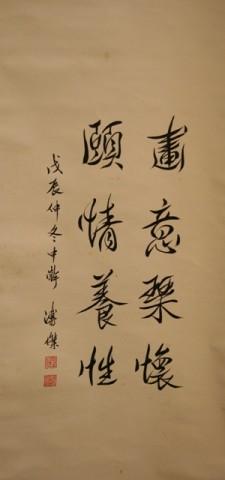 畫意琴懷
頤情養性
戊辰仲冬中澣 溥傑